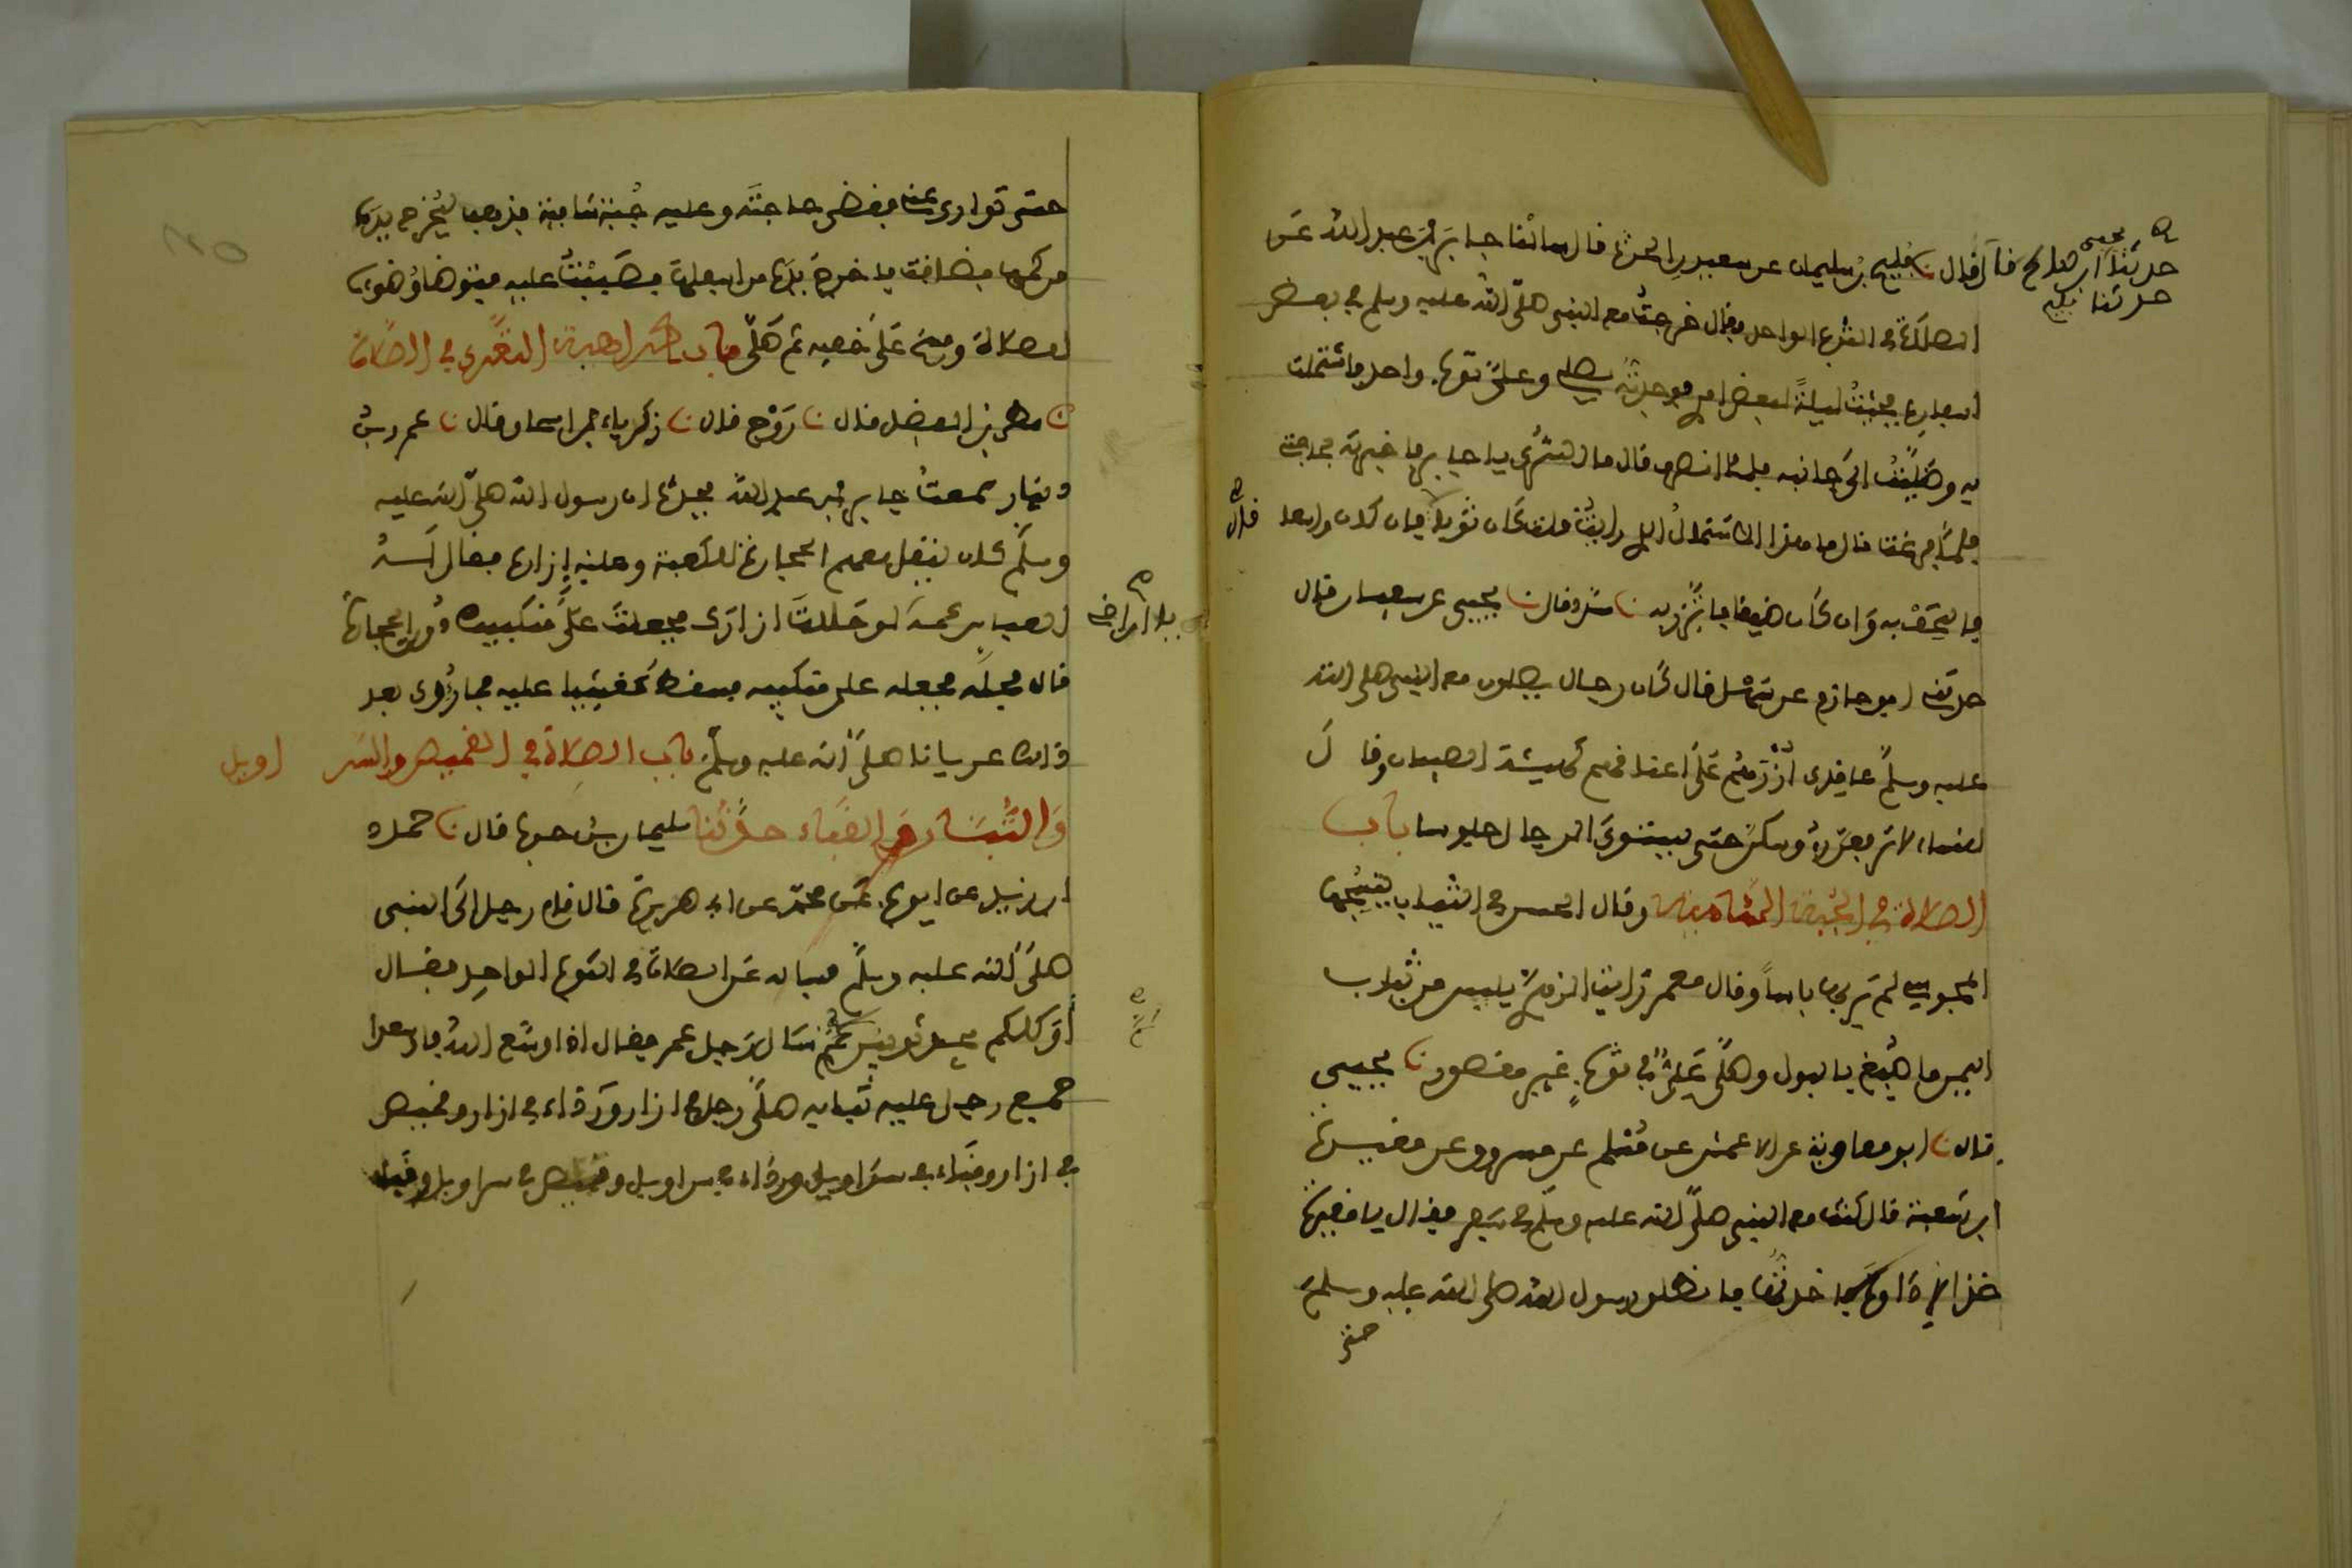 حدثنا يحيى بن صالح قال نا فليح بن سليمان عن سعيد بن الحرث قال سالنا جابر بن عبد الله عن
الصلاة في الثوب الواحد فقال خرجت مع النبي صلى الله عليه وسلم في بعض
اسفاره فجئت ليلة لبعض امري فوجدته يصلي وعلي ثوب واحد فاشتملت
به وصليت الى جانبه فلما انصرف قال ما السرى يا جابر فاخبرته بحاجتي
فلما فرغت قال ما هذا الاشتمال الذي رايت قلت كان ثوبا قال فان كان واسعا
فالتحف به وان كان ضيقا فاتزر به نا مسدد قال نا يحيى عن سفيان قال
حدثني ابو حازم عن سهل قال كان رجال يصلون مع النبي صلى الله
عليه وسلم عاقدي ازرهم على اعناقهم كهيئة الصبيان وقال
للنساء لا ترفعن رءوسكن حتى يستوي الرجال جلوسا باب
الصلاة في الجبة الشامية وقال الحسن في الثياب ينسجها
المجوسي لم ير بها باسا وقال معمر رايت الزهري يلبس من ثياب
اليمن ما صبغ بالبول وصلى علي في ثوب غير مقصور نا يحيى
قال نا ابو معاوية عن الاعمش عن مسلم عن مسروق عن مغيرة
ابن شعبة قال كنت مع النبي صلى الله عليه وسلم في سفر فقال يا مغيرة
خذ الاداوة فاخذتها فانطلق رسول الله صلى الله عليه وسلم
حتى
حتى توارى عني فقضى حاجته وعليه جبة شامية فذهب ليخرج يده
من كمها فضاقت فاخرج يده من اسفلها فصببت عليه فتوضا وضوءه
للصلاة ومسح على خفيه ثم صلى باب كراهية التعري في الصلاة
نا مطر بن الفضل قال نا روح قال نا زكرياء بن اسحاق قال نا عمرو بن
دينار سمعت جابر بن عبد الله يحدث ان رسول الله صلى الله عليه
وسلم كان ينقل معهم الحجارة للكعبة وعليه إزاره فقال له
العباس عمه لو حللت ازارك فجعلت على منكبيك دون الحجارة
قال فحله فجعله على منكبيه فسقط مغشيا عليه فما رؤي بعد
ذلك عريانا صلى الله عليه وسلم باب الصلاة في القميص والسراويل
والتبان والقباء حدثنا سليمان بن حرب قال نا حماد
ابن زيد عن ايوب عن محمد عن ابي هريرة قال قام رجل الى النبي
صلى الله عليه وسلم فساله عن الصلاة في الثوب الواحد فقال
أوكلكم يجد ثوبين ثم سال رجل عمر فقال اذا وسع الله فاوسعوا
جمع رجل عليه ثيابه صلى رجل في ازار ورداء في ازار وقميص
في ازار وقباء في سراويل ورداء في سراويل وقميص في سراويل وقباء